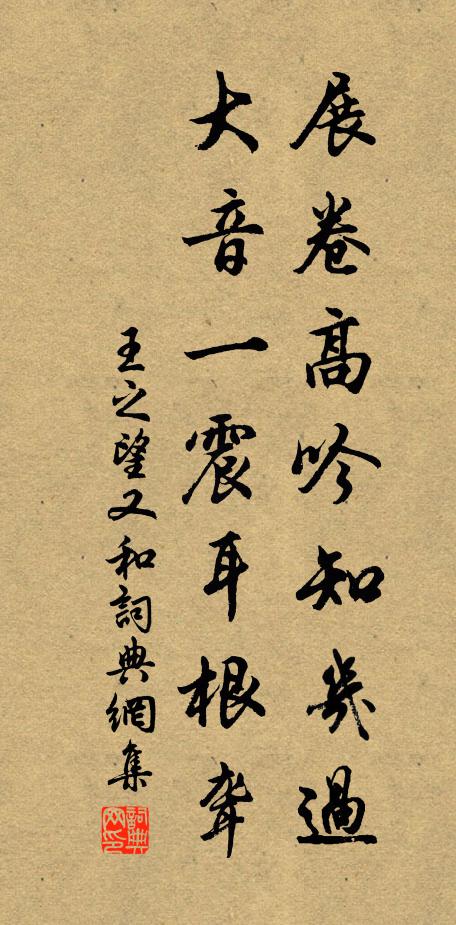 展卷高吟知幾過
大音一震耳根聾
王之望又和詞典網集
詞典網印